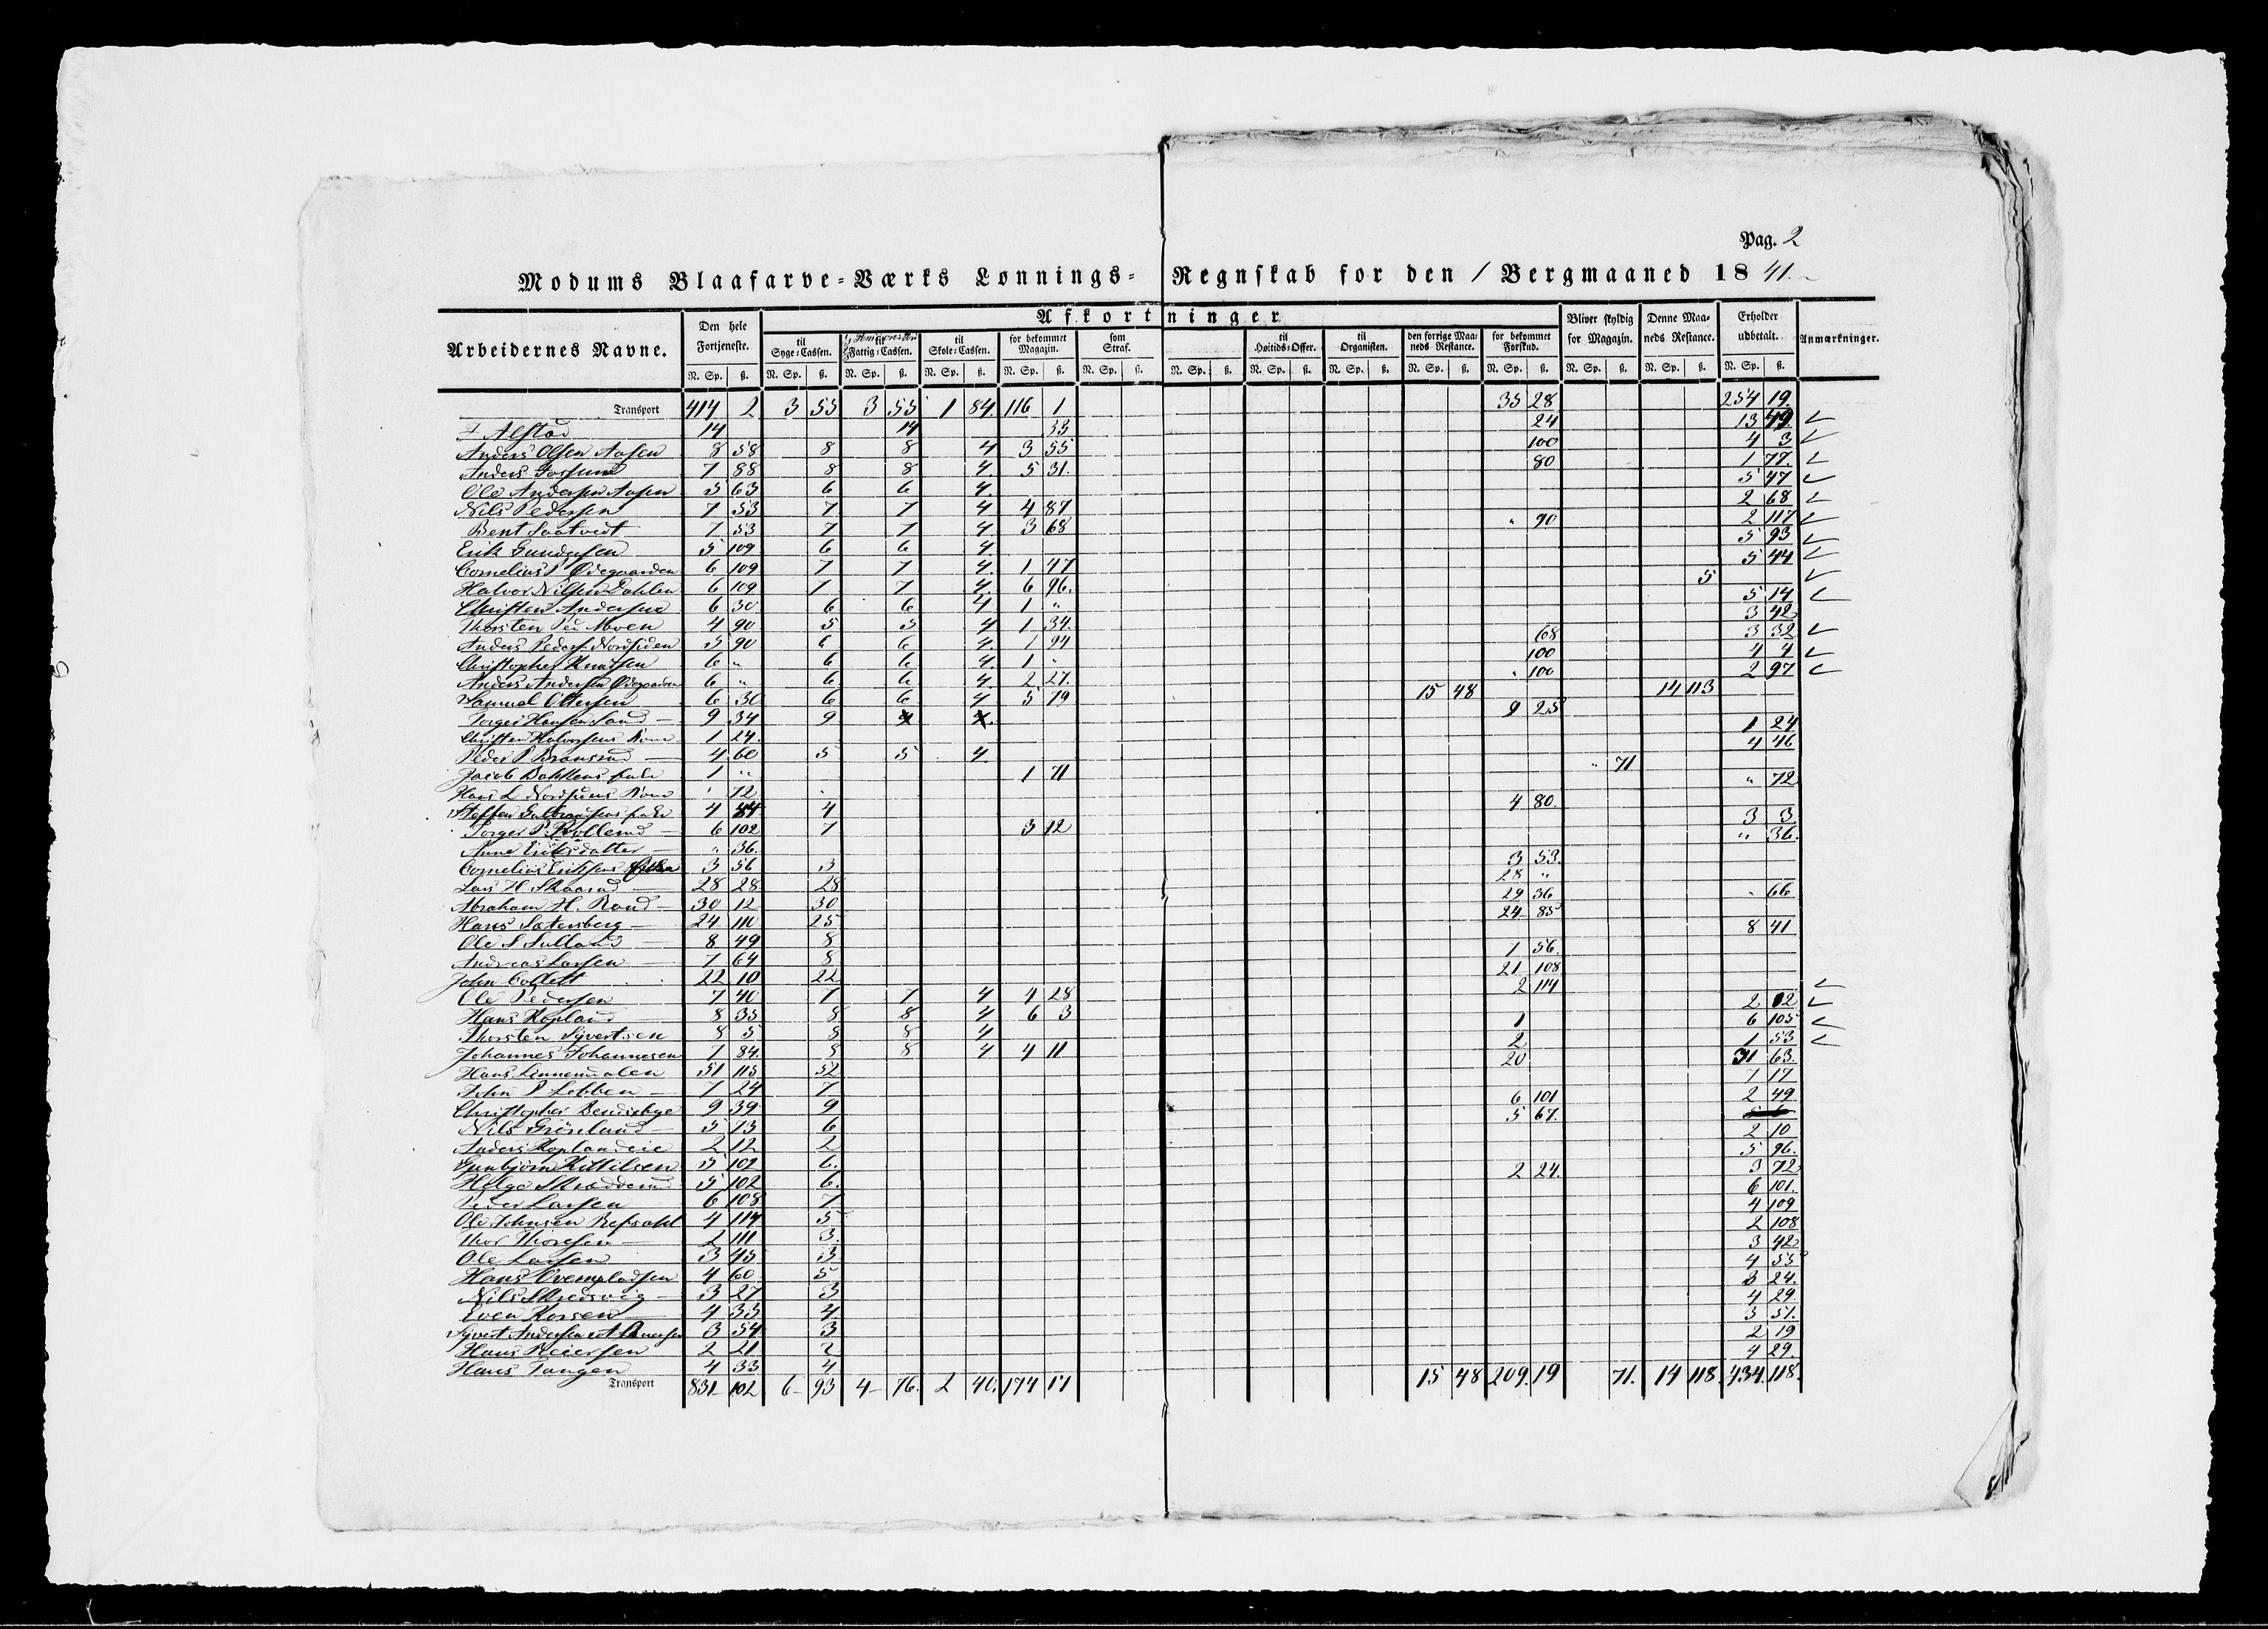 Pag. 2
Modums Blaafarve=Værks Lønnings= Regnskab for den 1 Bergmaaned 1841.
Afkortninger
Arbeidernes Navne. Den hele Fortjeneste. til Syge=Cassen. til Fattig=Cassen. til Skole=Cassen. for bekommet Magazin. som Straf. til Høitids=Offer. til Organisten. den forrige Maaneds Restance. for bekommet Forskud. Bliver skyldig for Magazin. Denne Maaneds Restance. Erholder udbetalt. Anmærkninger.
N. Sp. ß. N. Sp. ß. N. Sp. ß. N. Sp. ß. N. Sp. ß. N. Sp. ß. N. Sp. ß. N. Sp. ß. N. Sp. ß. N. Sp. ß. N. Sp. ß. N. Sp. ß. N. Sp. ß. N. Sp. ß.
Transport 414 2 3 55 3 55 1 84 116 1 35 28 254 19
Alstad 14 14 33 24 13 49 ✓
Anders Olsen Aasen 8 58 8 8 4 3 55 100 4 3 ✓
Anders Fossum 7 88 8 8 4 5 31 80 1 77 ✓
Ole Andersen Aasen 5 63 6 6 4 5 47 ✓
Nils Pedersen 7 53 7 7 4 4 87 2 68 ✓
Bent Saatvedt 7 53 7 7 4 3 68 " 90 2 117 ✓
Erik Gundersen 5 109 6 6 4 5 93 ✓
Cornelius P Ødegaarden 6 109 7 7 4 1 47 5 44 ✓
Halvor Nilsen Dahlen 6 109 7 7 4 6 96 5 ✓
Christen Andersen 6 30 6 6 4 1 " 5 14 ✓
Thorsten Moen 4 90 5 5 4 1 34 3 42
Anders Peders. Nordsiden 5 90 6 6 4 1 94 68 3 32 ✓
Christopher Knudsen 6 " 6 6 4 1 " 100 4 4 ✓
Anders Andersen Ødegaarden 6 " 6 6 4 2 27 " 100 2 97 ✓
Samuel Ottersen 6 30 6 6 4 5 79 15 48 14 113
Torger Hansen Sand 9 34 9 9 25
Christen Halvorsens Kone 1 24 1 24
Peder P 4 60 5 5 4 4 46
Jacob Bahkens 1 " 1 71 " 71
Hans L Kone " 72 " 72
Steffen 4 84 4 4 80
Torger P 6 102 7 3 12 3 3
Anne Eriksdatter " 36 " 36
Cornelius Eriksens 3 56 3 3 53
Lars H. Skaarud 28 28 28 28 "
Abraham H. Rond 30 12 30 29 36 " 66
Hans Sætersberg 24 110 25 24 85
Ole S 8 49 8 8 41
Andreas Larsen 7 64 8 7 56
John Collett 22 10 22 21 108
Ole Pedersen 7 40 7 7 4 4 28 2 114 ✓
Hans Kopland 8 35 8 8 4 6 3 2 12 ✓
Thorsten Syvertsen 8 5 8 8 4 1 6 105 ✓
Johannes Johannesen 7 84 8 8 4 4 11 2 1 53 ✓
Hans Linnerudalen 51 115 52 20 31 63
John P Lobben 7 24 7 7 17
Christopher 9 39 9 6 101 2 49
Nils Grönlund 5 73 6 5 67
Anders Koplandeie 2 12 2 2 10
Gunbjörn Kittilsen 5 102 6 5 96
Helge 5 102 6 2 24 3 72
Peder Larsen 6 108 7 6 101
Ole Johnsen 4 114 5 4 109
Thor Thoresen 2 111 3 2 108
Ole Larsen 3 45 3 3 42
Hans 4 60 5 4 55
Nils Skredsvig 3 27 3 3 24
Even 4 33 4 4 29
Syvert Andersen 3 54 3 3 51
Hans Reiersen 2 21 2 2 19
Hans Tangen 4 33 4 4 29
Transport 831 102 6 93 4 76 2 40 174 17 15 48 209 19 71 14 118 434 118